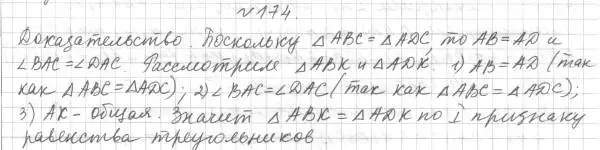 №174.
Доказательство. Поскольку △ABC=△ADC, то AB=AD и
∠BAC=∠DAC. Рассмотрим △ABK и △ADK: 1) AB=AD (так
как △ABC=△ADC); 2) ∠BAC=∠DAC (так как △ABC=△ADC);
3) AK - общая. Значит △ABK=△ADK по I признаку
равенства треугольников